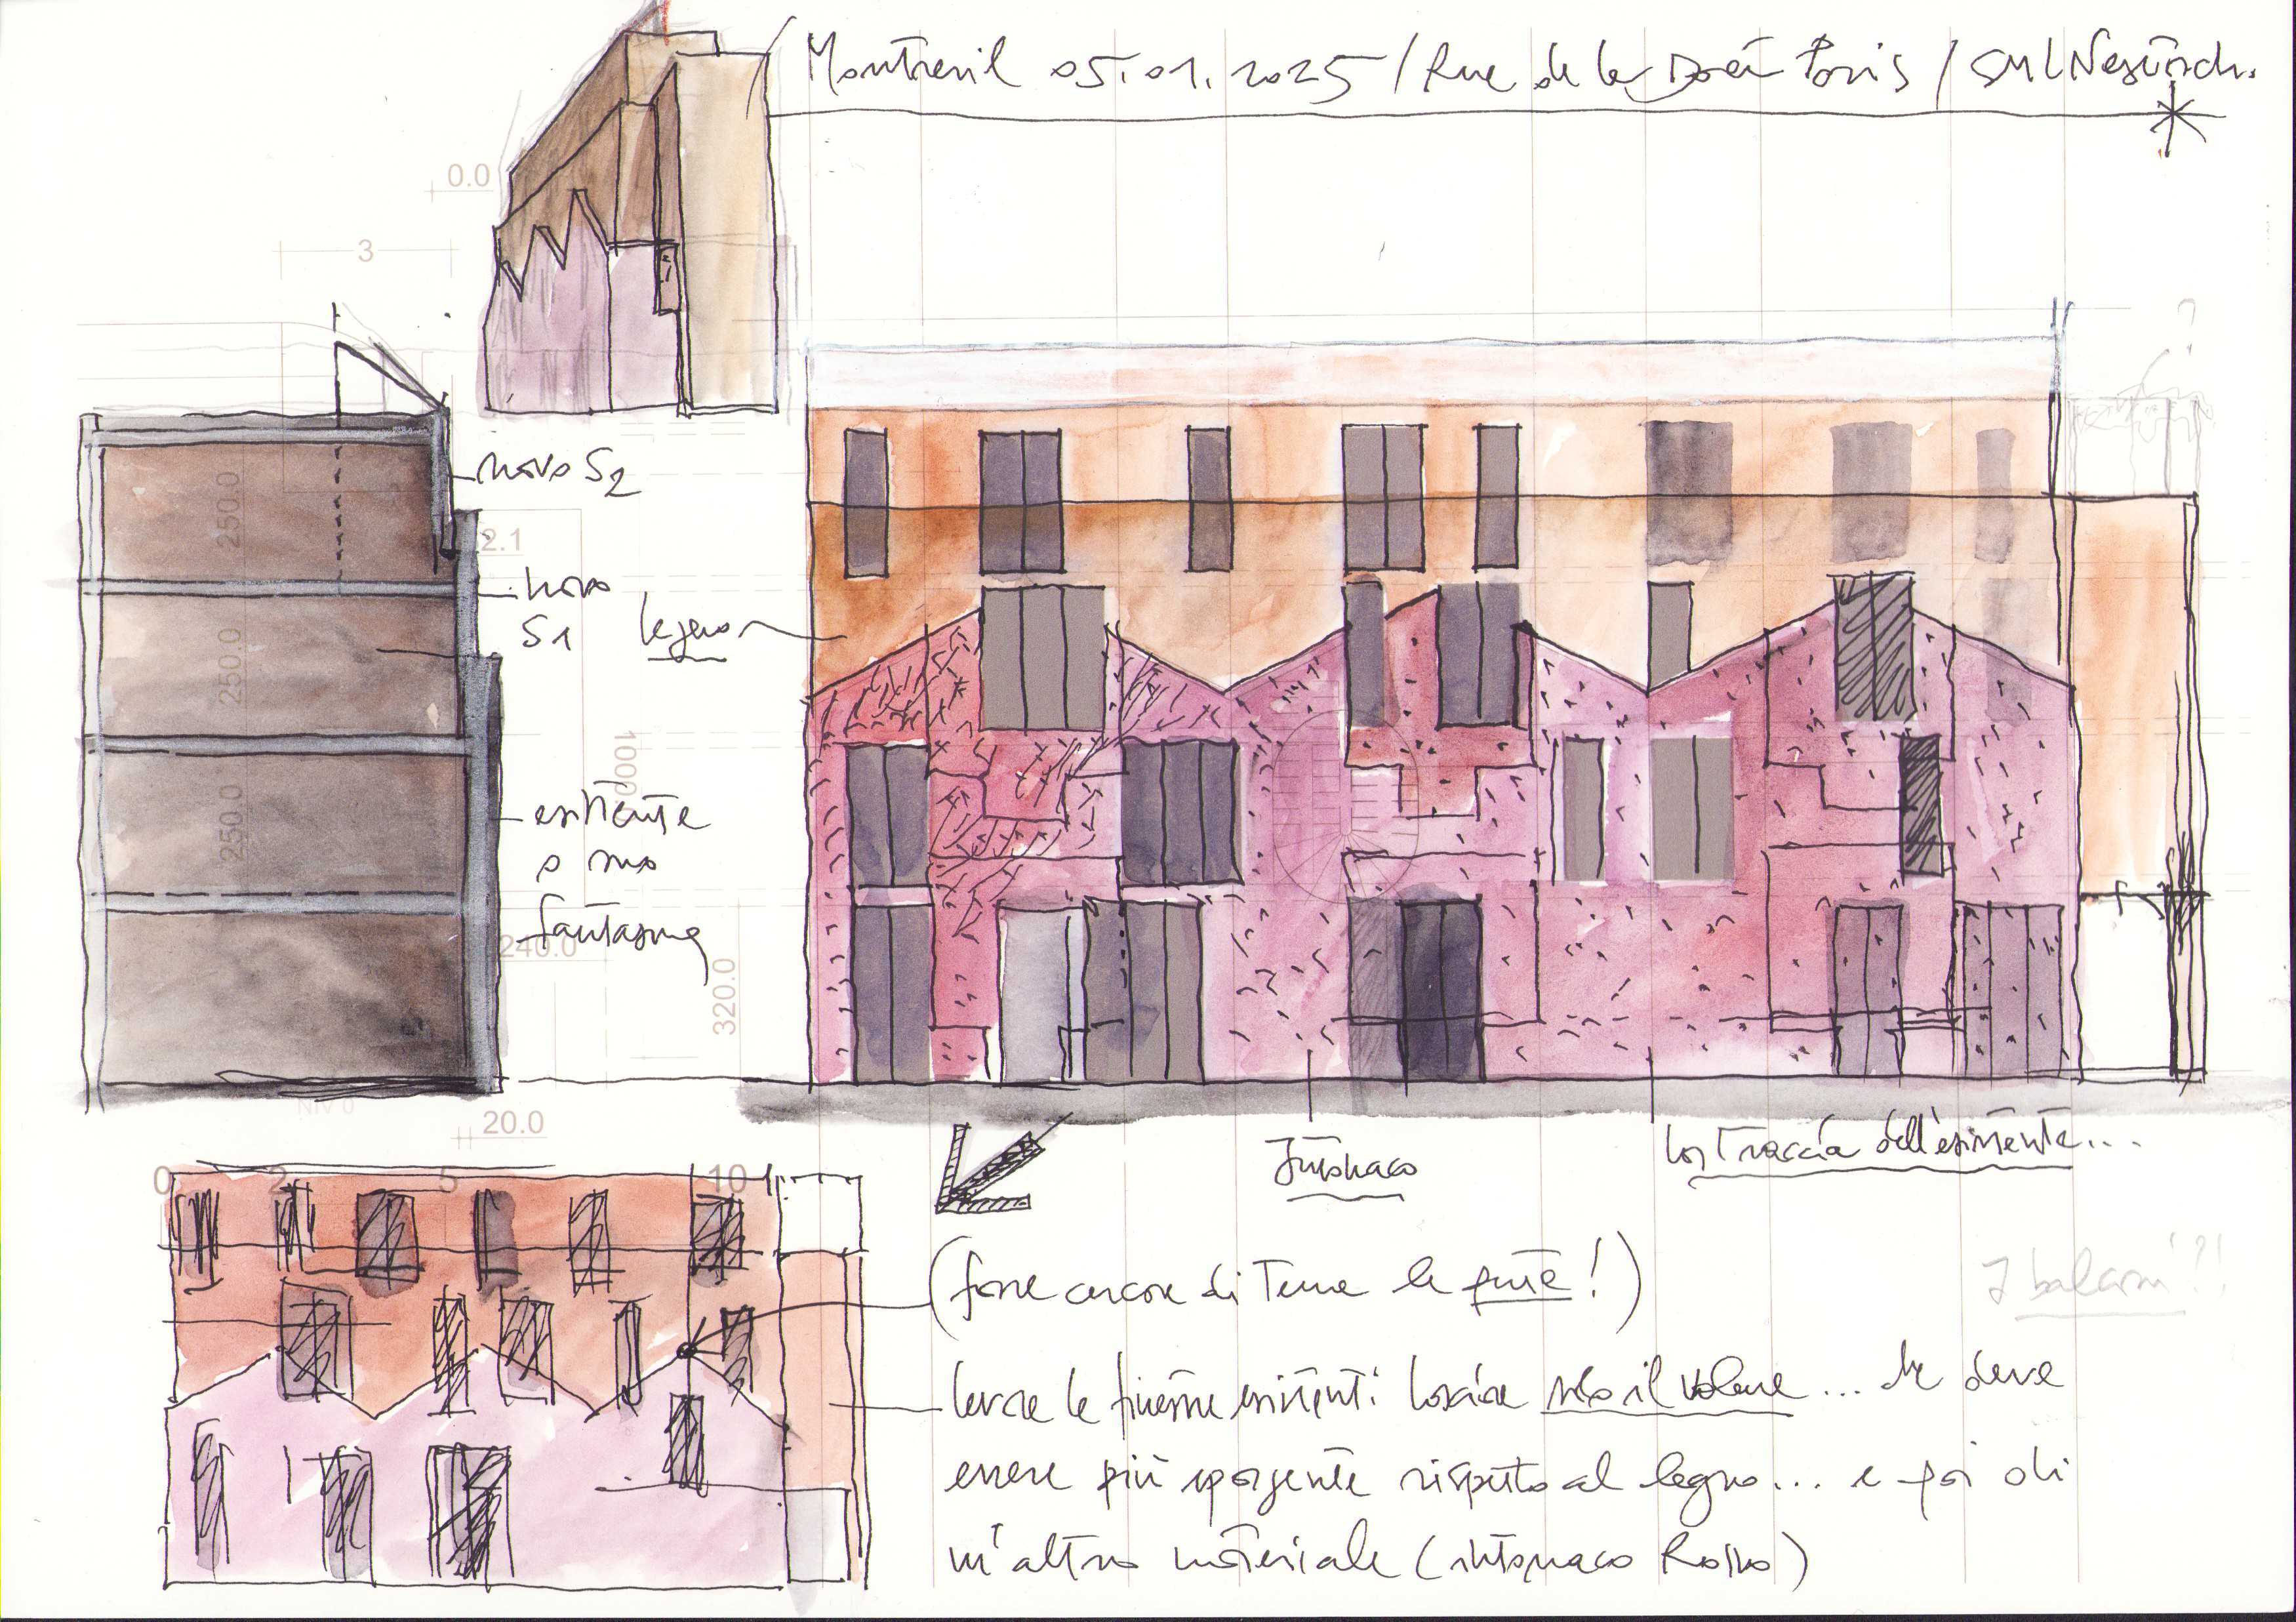 Montreuil 05.01.2025 / Rue de la Paris / SML
0.0
3
novo S2
250.0
2.1
novo
S1
legno
250.0
1000.0
esistente
o suo
fantasma
250.0
240.0
320.0
NIV 0
20.0
Intonaco
la traccia dell'esistente...
0 2 5 10
(forse cercare di tenere le punte!)
I balconi?!
levare le finestre esistenti: lasciare solo il volume... che deve
essere più sporgente rispetto al legno... e poi di
un'altro materiale (intonaco Rosso)